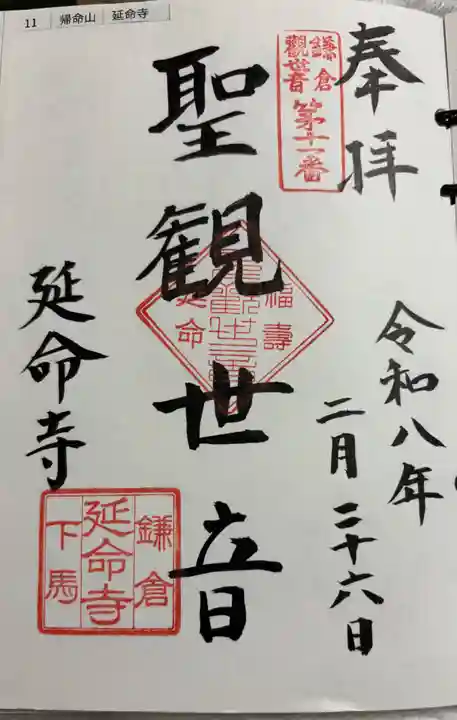 11 帰命山 延命寺
奉拝
令和八年
二月二十六日
鎌倉
觀世音
第十一番
聖観世音
福壽
延命
延命寺
鎌倉
延命寺
下馬